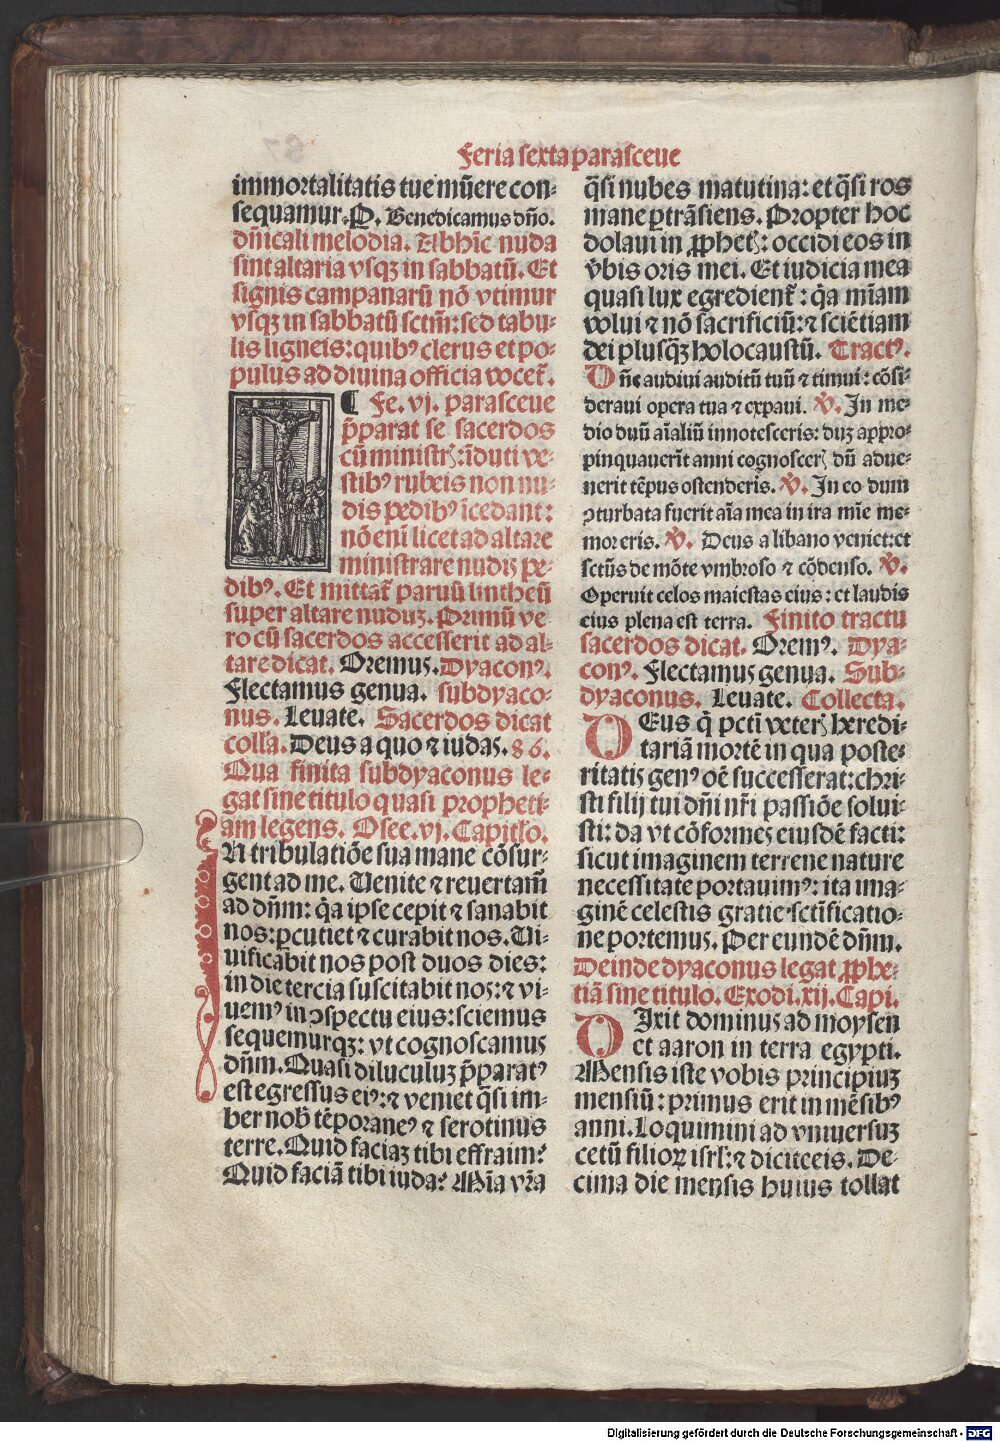 Feria sexta parasceue
immortalitatis tue mũere con⸗
sequamur. P. Benedicamus dño.
dñicali melodia. Abhĩc nuda
sint altaria vsqꝫ in sabbatũ. Et
signis campanarũ nõ vtimur
vsqꝫ in sabbatũ sctm̃: sed tabu⸗
lis ligneis: quibꝰ clerus et po⸗
pulus ad diuina officia vocet᷑.
¶ Fe. vj. parasceue
p̃parat se sacerdos
cũ ministrꝭ: ĩduti ve⸗
stibꝰ rubeis non nu⸗
dis pedibꝰ ĩcedant:
nõ enĩ licet ad altare
ministrare nudis pe⸗
dibꝰ. Et mittat᷑ paruũ lintheũ
super altare nuduꝫ. Primũ ve
ro cũ sacerdos accesserit ad al⸗
tare dicat. Oremus. Dyaconꝰ.
Flectamus genua. subdyaco⸗
nus. Leuate. Sacerdos dicat
coll̃a. Deus a quo ⁊ iudas. 86.
Qua finita subdyaconus le⸗
gat sine titulo quasi propheti⸗
am legens. Osee. vj. Capitl̃o.
IN tribulatiõe sua mane cõsur⸗
gent ad me. Uenite ⁊ reuertam̃
ad dñm: q̃a ipse cepit ⁊ sanabit
nos: ꝑcutiet ⁊ curabit nos. Ui⸗
uificabit nos post duos dies:
in die tercia suscitabit nos: ⁊ vi⸗
uemꝰ in ꝯspectu eius: sciemus
sequemurqꝫ: vt cognoscamus
dñm. Quasi diluculuꝫ p̃paratꝰ
est egressus eiꝰ: ⁊ veniet q̃si im⸗
ber nob̃ tẽporaneꝰ ⁊ serotinus
terre. Quid faciaꝫ tibi effraim?
Quid faciã tibi iuda? Mĩa vr̃a
q̃si nubes matutina: et q̃si ros
mane ꝑtrãsiens. Propter hoc
dolaui in ꝓphetꝭ: occidi eos in
v̾bis oris mei. Et iudicia mea
quasi lux egredient᷑: q̃a mĩam
volui ⁊ nõ sacrificiũ: ⁊ sciẽtiam
dei plusq̃ꝫ holocaustũ. Tractꝰ.
Dñe audiui auditũ tuũ ⁊ timui: cõsi⸗
deraui opera tua ⁊ expaui. ℣. In me⸗
dio duũ aĩaliũ innotesceris: duꝫ appro⸗
pinquauerĩt anni cognoscerꝭ dũ adue⸗
nerit tẽpus ostenderis. ℣. In eo dum
ꝯturbata fuerit aĩa mea in ira mĩe me⸗
mor eris. ℣. Deus a libano veniet: et
sctũs de mõte vmbroso ⁊ cõdenso. ℣.
Operuit celos maiestas eius: et laudis
eius plena est terra. Finito tractu
sacerdos dicat. Oremꝰ. Dya⸗
conꝰ. Flectamus genua. Sub⸗
dyaconus. Leuate. Collecta.
DEus q̃ pctĩ veterꝭ heredi⸗
tariã mortẽ in qua poste⸗
ritatis genꝰ oẽ successerat: chri⸗
sti filij tui dñi nr̃i passiõe solui⸗
sti: da vt cõformes eiusdẽ facti:
sicut imaginem terrene nature
necessitate portauimꝰ: ita ima⸗
ginẽ celestis gratie sctĩficatio⸗
ne portemus. Per eundẽ dñm.
Deinde dyaconus legat ꝓphe⸗
tiã sine titulo. Exodi. xij. Capi.
DIxit dominus ad moysen
et aaron in terra egypti.
Mensis iste vobis principiuꝫ
mensiũ: primus erit in mẽsibꝰ
anni. Loquimini ad vniuersuꝫ
cetũ filioꝝ isrl̃: ⁊ dicite eis. De⸗
cima die mensis huius tollat
Digitalisierung gefördert durch die Deutsche Forschungsgemeinschaft - DFG